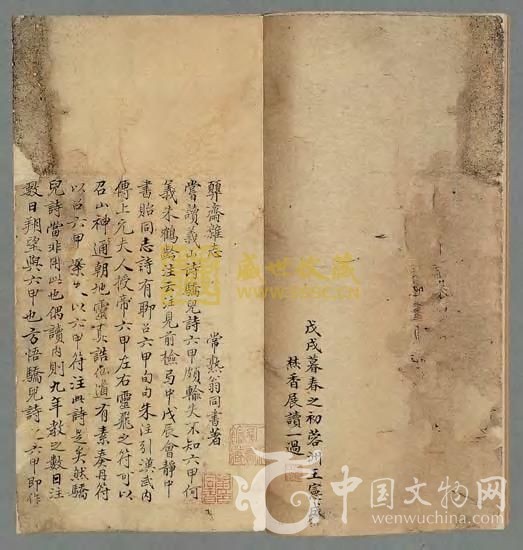 戊戌暮春之初蓉洲王憲成
焚香展讀一過
顨齋雜志
常熟翁同書著
嘗讀義山詩驕兒詩六甲頗輸失不知六甲何
義朱鶴齡注云注見前檢馬中戊辰會靜中
書貽同志詩有聊召六甲旬句朱注引漢武内
傳上元夫人授帝六甲左右靈飛之符可以
召山神通朝地靈真誥仙道有素奏丹符
以召六甲以六甲符注此詩是矣然驕
兒詩當非用此也偶讀内則九年教之數日注
數日朔望與六甲也方悟驕兒詩之六甲即作
盛世收藏
中国文物网
wenwuchina.com